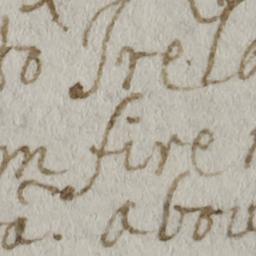 to Irela
m fire
a. abou